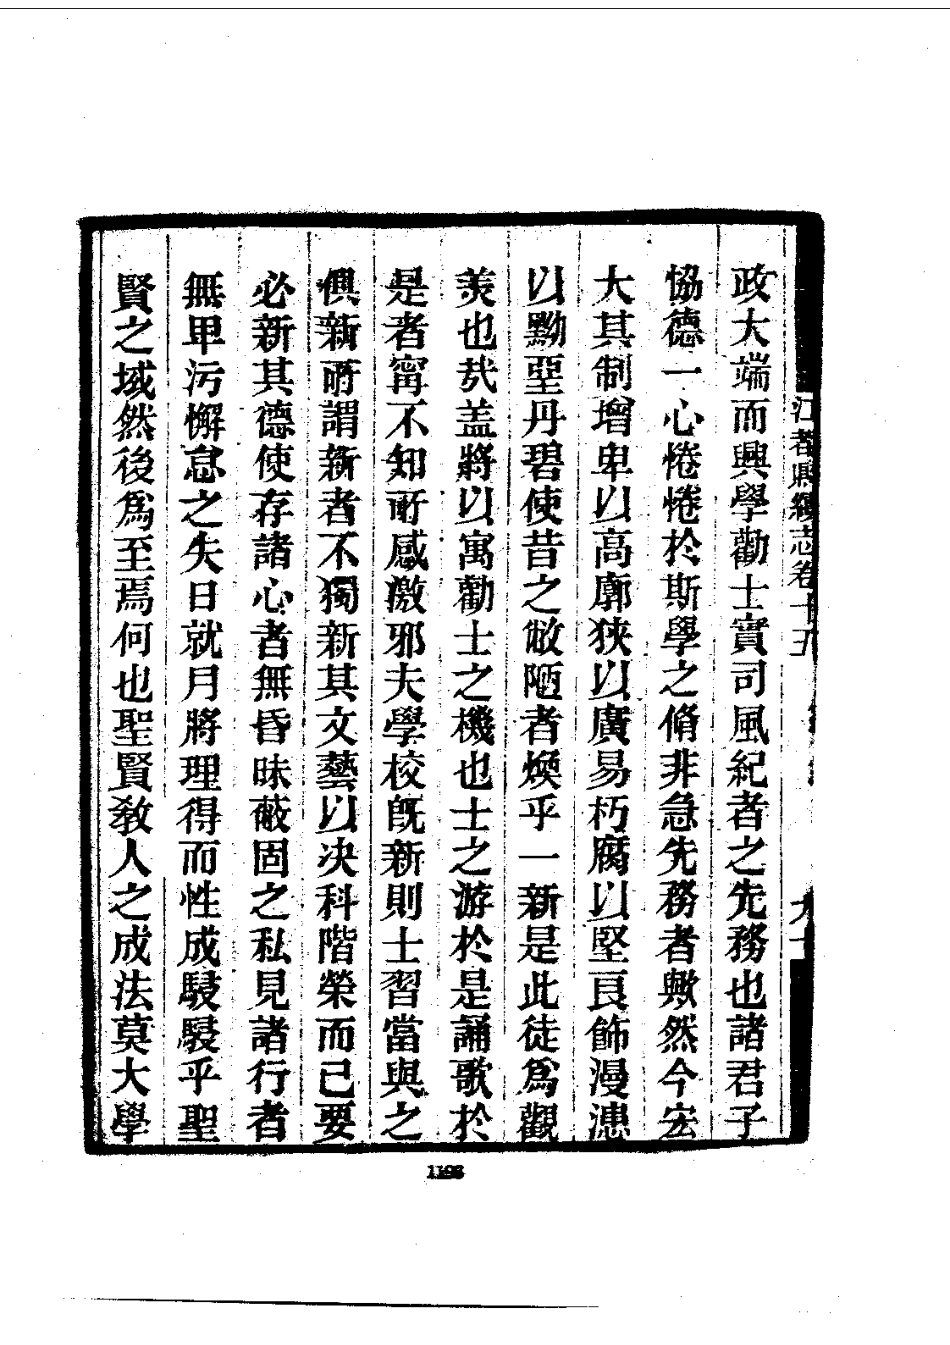 江都縣續志卷十五
政大端而興學勸士實司風紀者之先務也諸君子
協德一心惓惓於斯學之脩非急先務者歟然今宏
大其制增卑以高廓狹以廣易朽腐以堅良飾漫漶
以黝堊丹碧使昔之敝陋者煥乎一新是此徒爲觀
美也㢤盖將以寓勸士之機也士之游於是誦歌於
是者寗不知所感激邪夫學校旣新則士習當與之
俱新所謂新者不獨新其文藝以决科階榮而已要
必新其德使存諸心者無昏昧蔽固之私見諸行者
無卑污懈怠之失日就月將理得而性成駸駸乎聖
賢之域然後爲至焉何也聖賢敎人之成法莫大學
1198